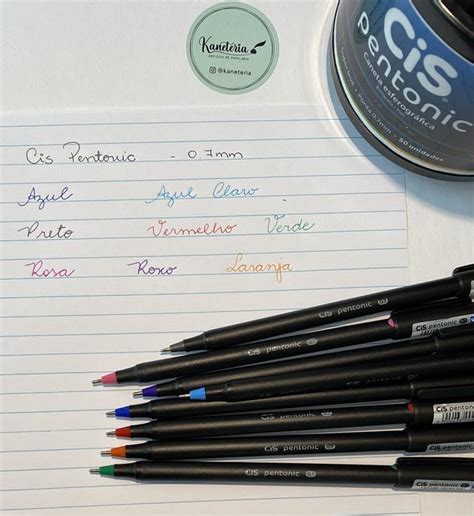 Kaneteria
ARTIGOS DE PAPELARIA
@kaneteria
CiS
pentonic
Caneta esferográfica
Ponta 0.7mm
50 unidades
Cis Pentonic - 0.7mm
Azul Azul Claro
Preto Vermelho Verde
Rosa Roxo Laranja
CiS pentonic
CiS pentonic CiS pentonic
CiS pentonic
CiS pentonic
CiS pentonic CiS pentonic
CiS pentonic